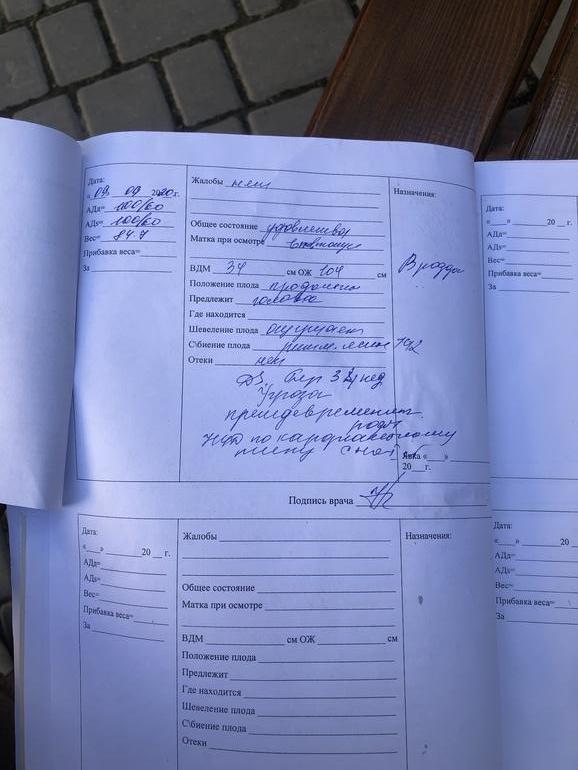 Дата:
« 09 » 09 2020 г.
АДд= 100/60
АДs= 100/60
Вес= 84.7
Прибавка веса=
За
Жалобы нет
Общее состояние удовлетвор
Матка при осмотре
ВДМ 34 см ОЖ 104 см
Положение плода продольн
Предлежит головка
Где находится
Шевеление плода ощущает
С\биение плода ритм. ясн 142
Отеки нет
DS. Бер 34 нед
Угроза
преждевременных
родов
НЦД по кардиальному
типу с н0
Явка «__»
20__г.
Подпись врача
Назначения:
В роддом
Дата:
«___» 20 __ г.
АДд=
АДs=
Вес=
Прибавка веса=
За
Дата:
«___» 20 __ г.
АДд=
АДs=
Вес=
Прибавка веса=
За
Жалобы
Общее состояние
Матка при осмотре
ВДМ см ОЖ см
Положение плода
Предлежит
Где находится
Шевеление плода
С\биение плода
Отеки
Назначения:
Дата:
«___» 20
АДд=
АДs=
Вес=
Прибавка веса=
За